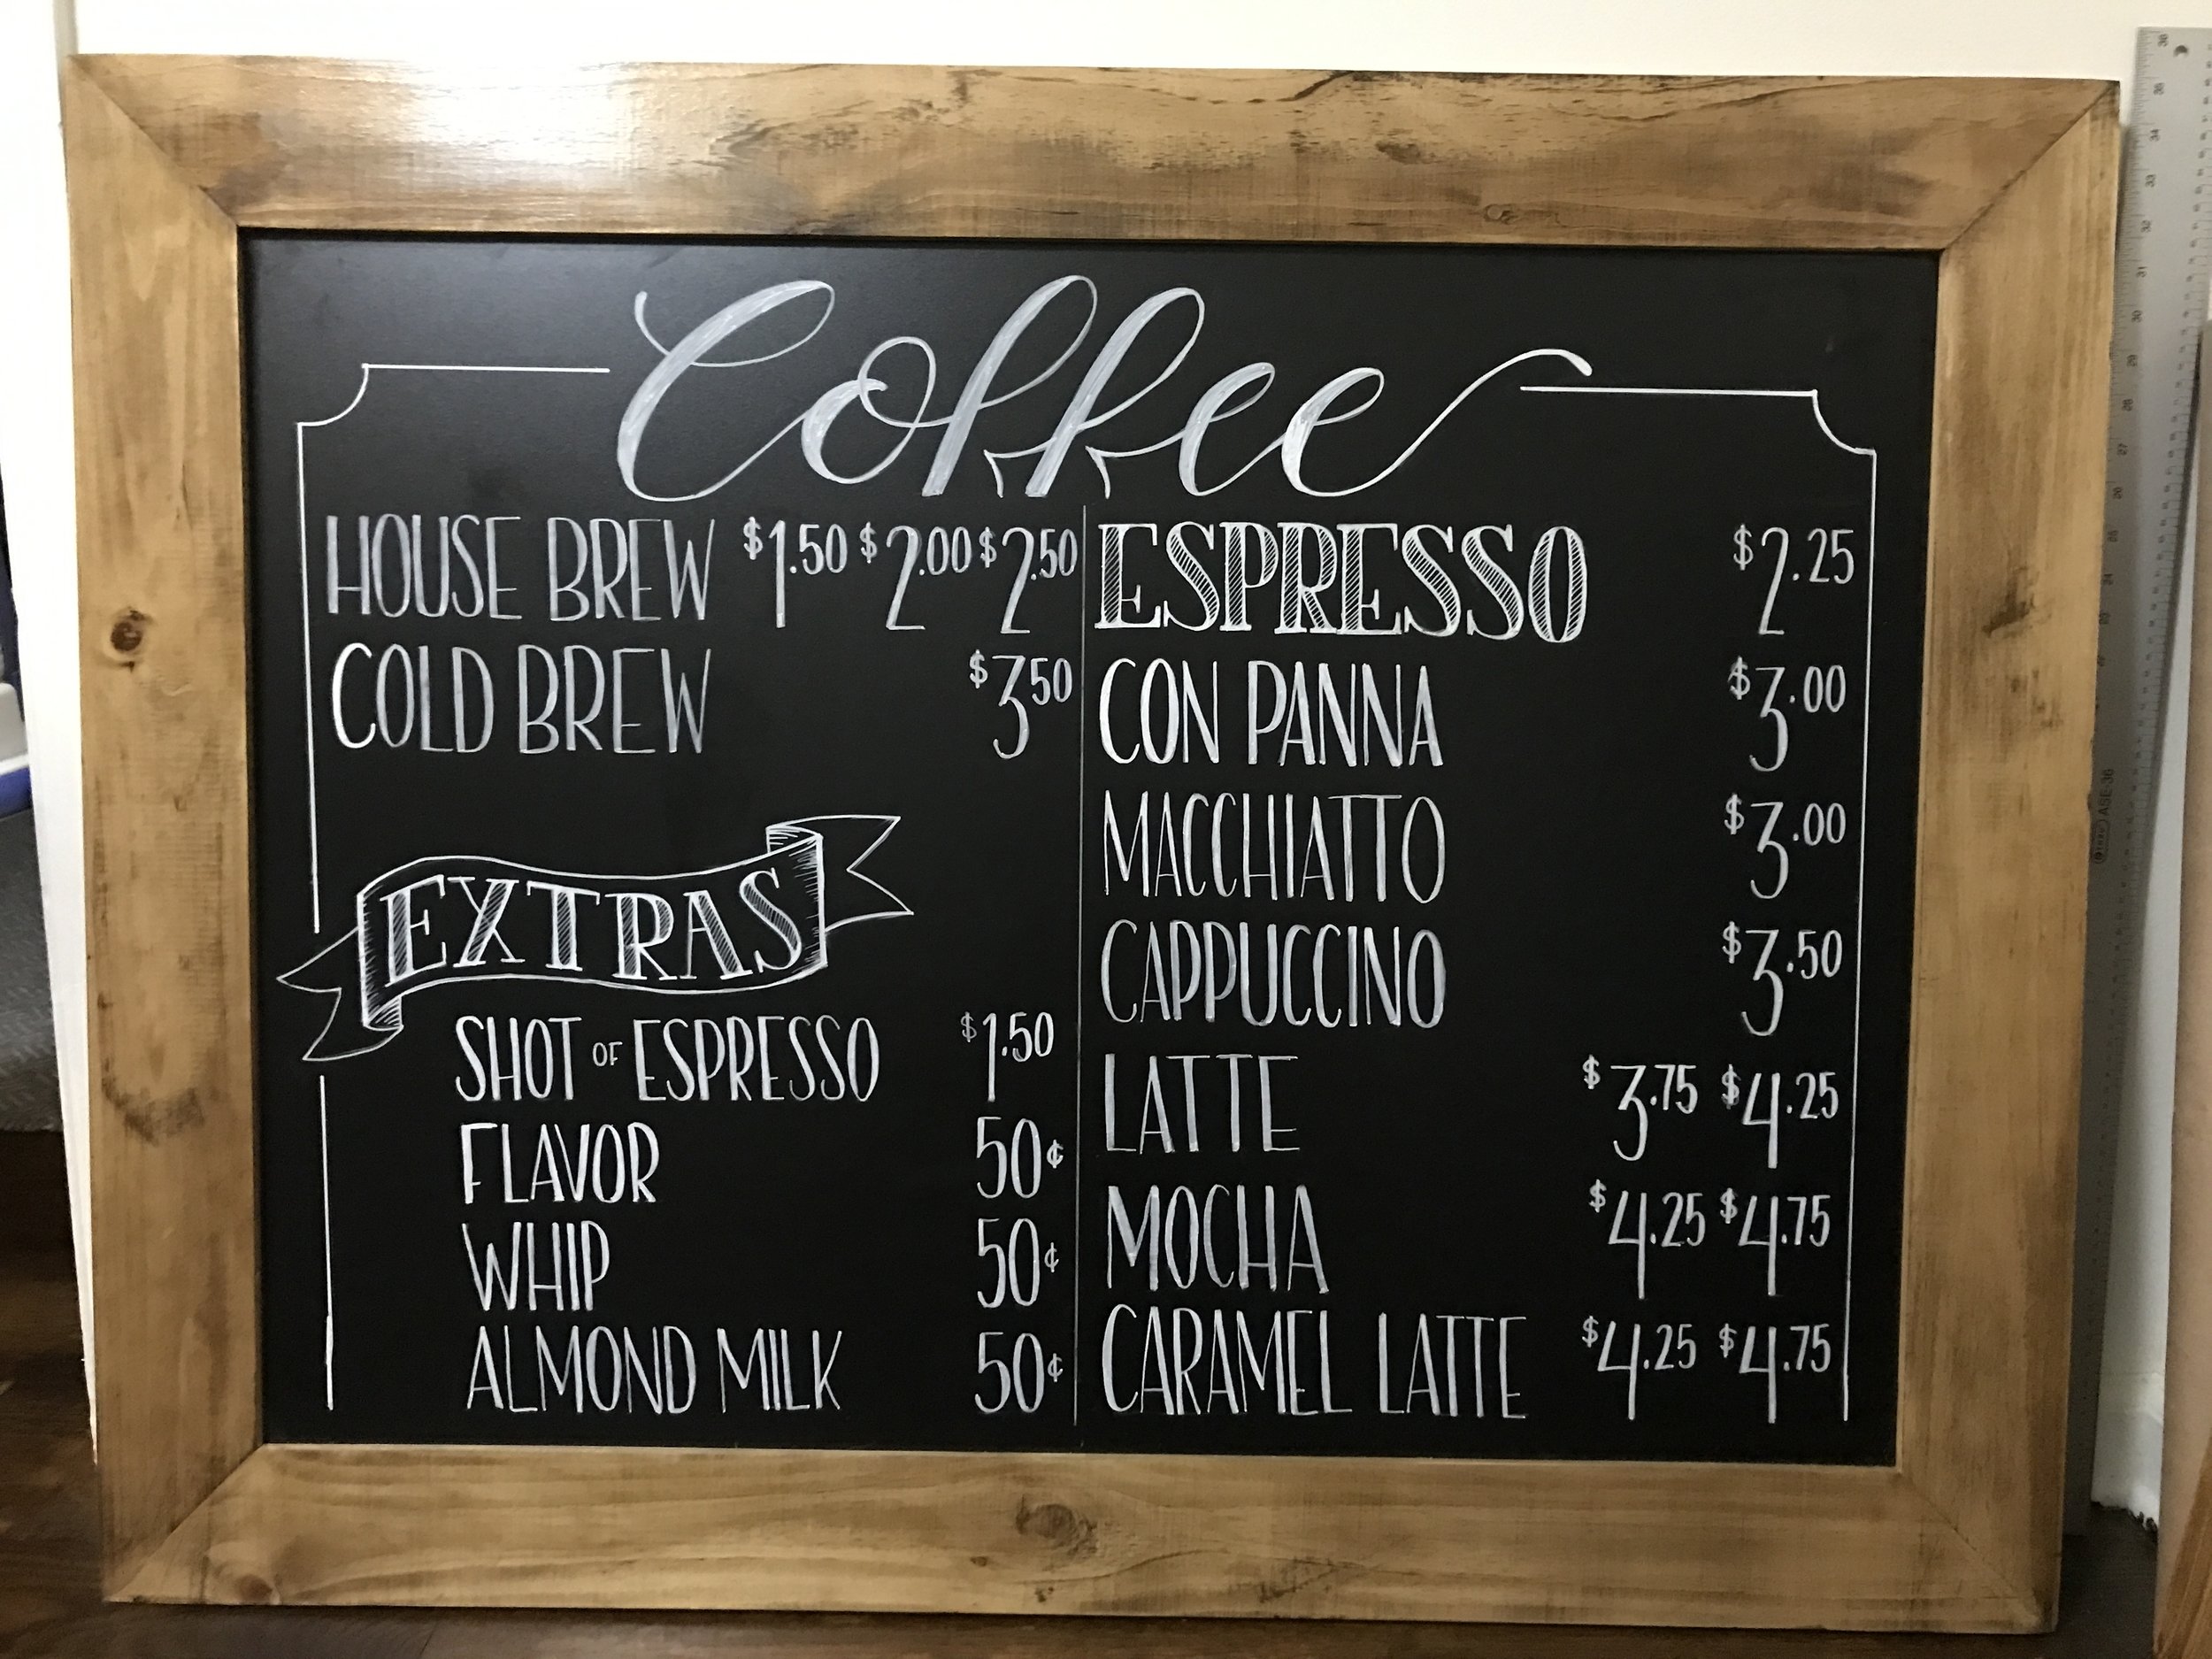 Coffee
HOUSE BREW $1.50 $2.00 $2.50
COLD BREW $3.50
EXTRAS
SHOT OF ESPRESSO $1.50
FLAVOR 50¢
WHIP 50¢
ALMOND MILK 50¢
ESPRESSO $2.25
CON PANNA $3.00
MACCHIATTO $3.00
CAPPUCCINO $3.50
LATTE $3.75 $4.25
MOCHA $4.25 $4.75
CARAMEL LATTE $4.25 $4.75